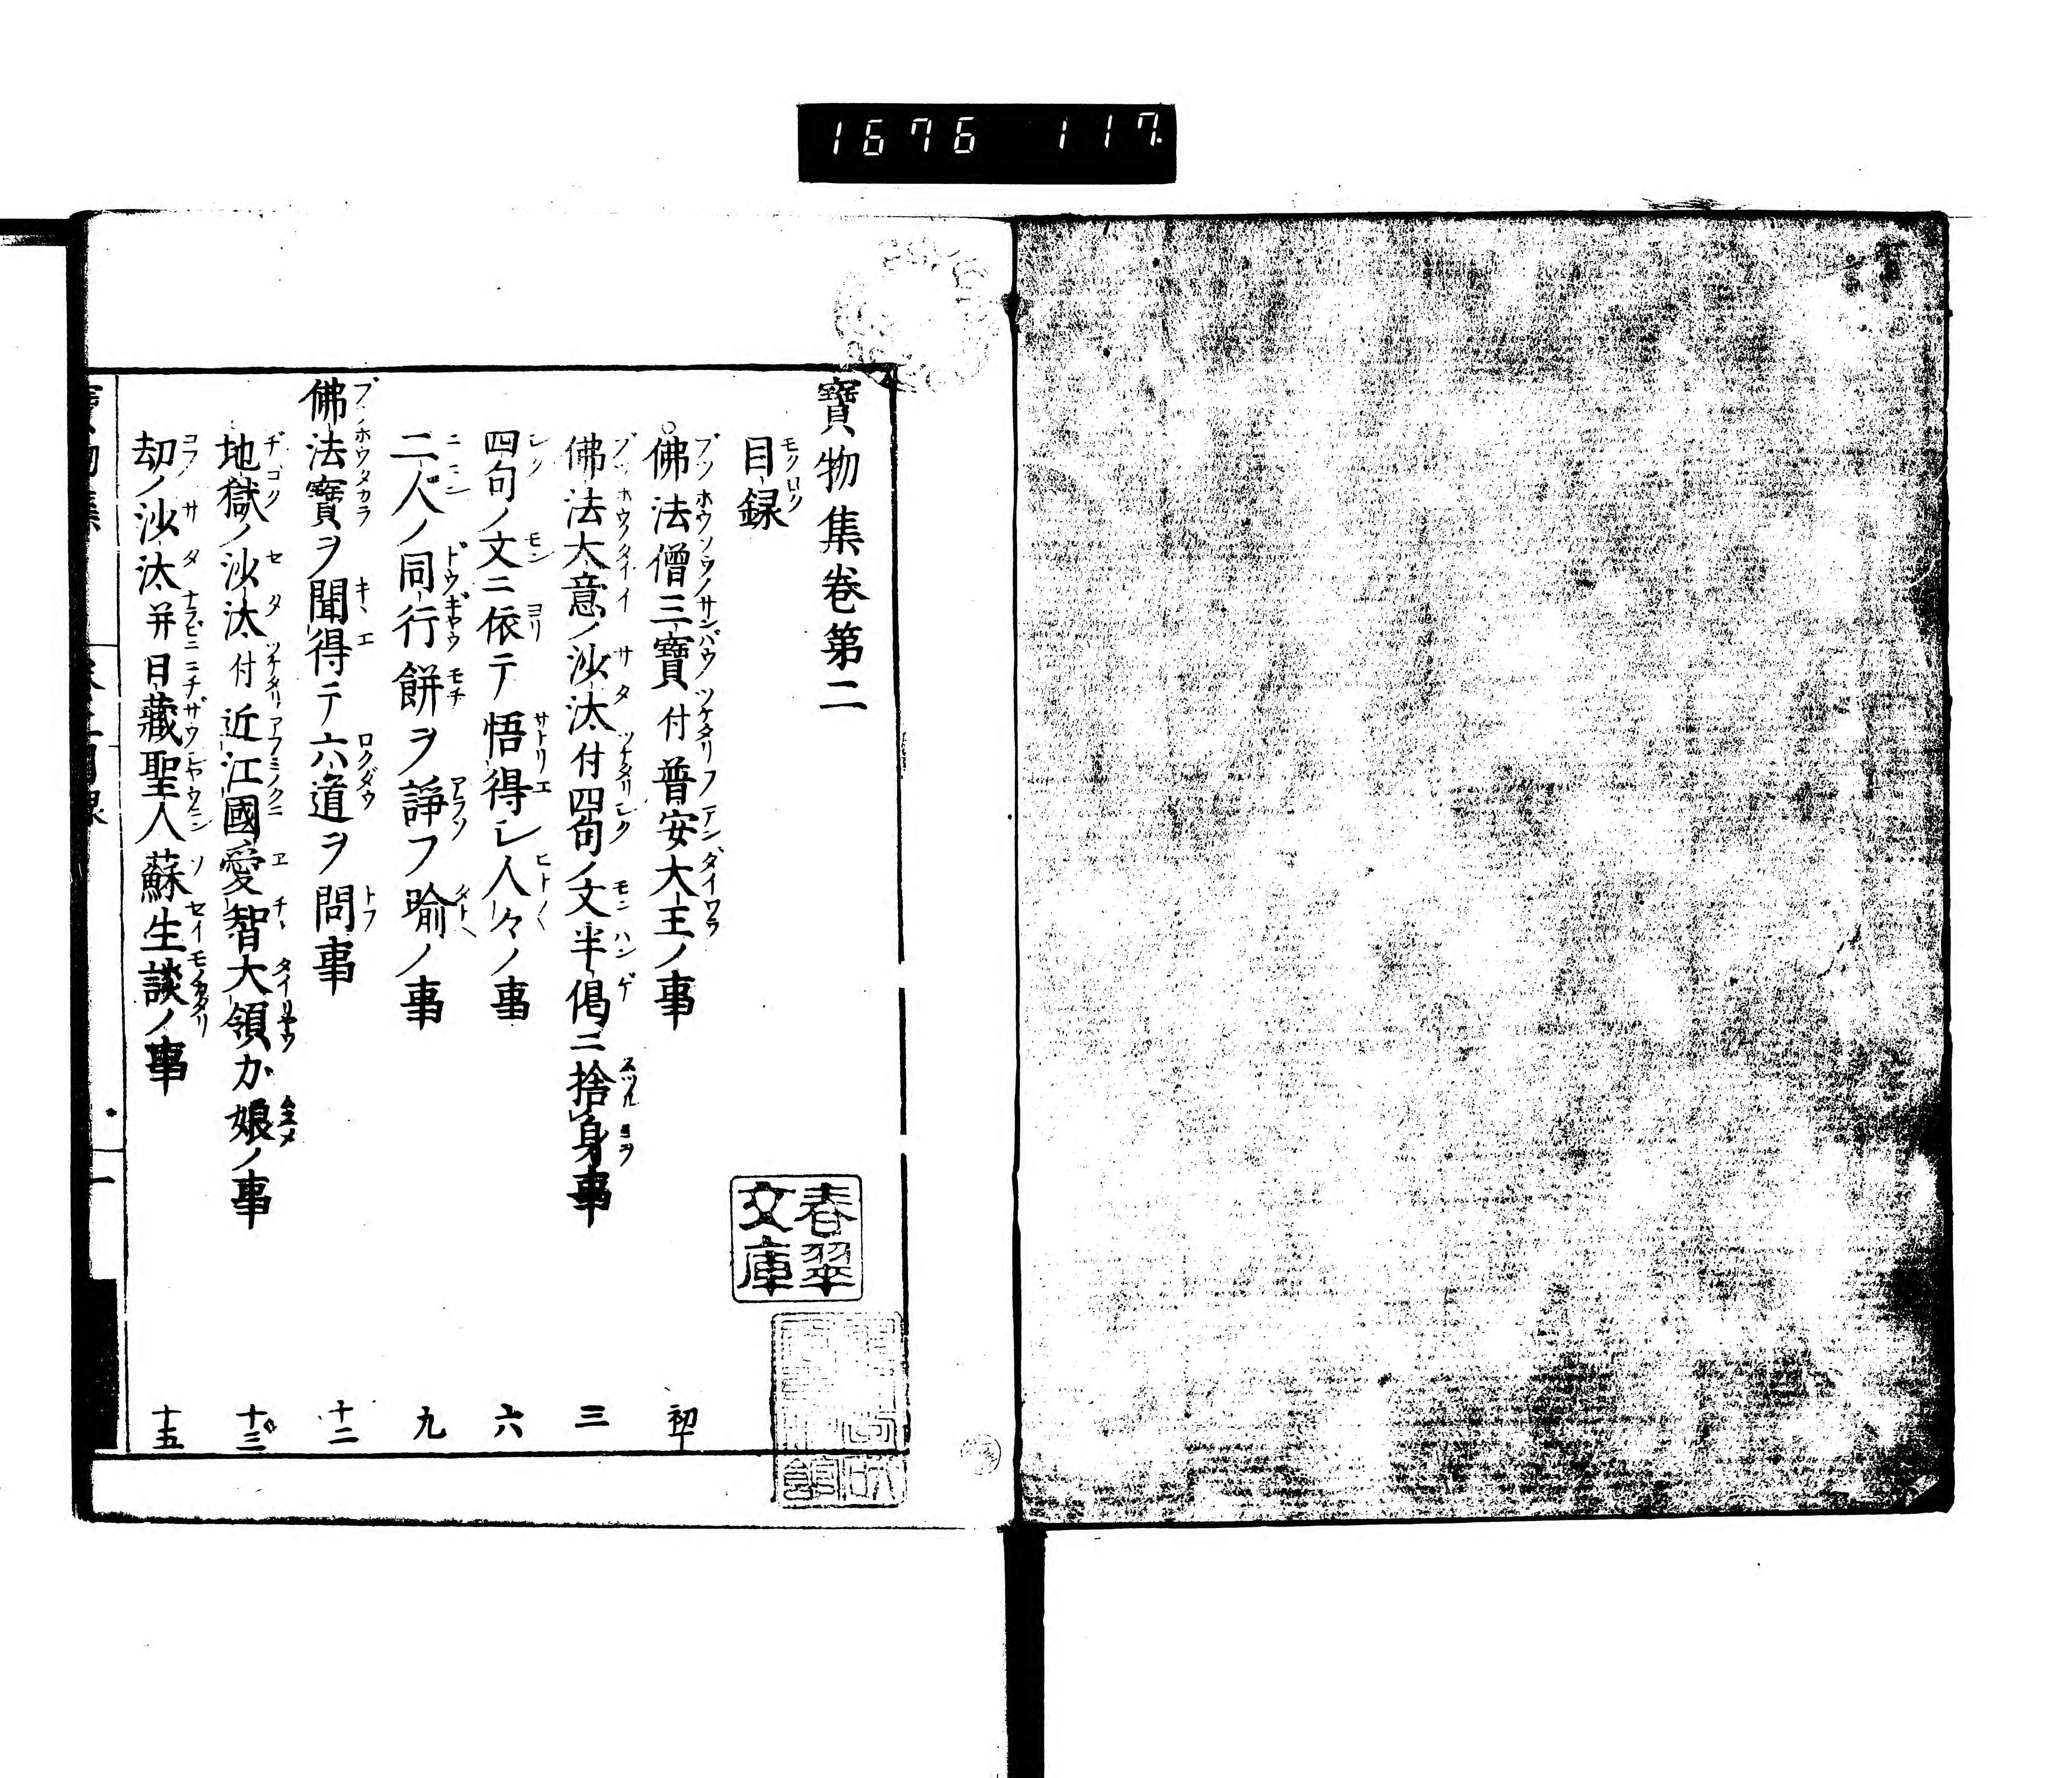 1676 117
寶物集卷第二
目録
佛法僧三寶付普安大王ノ事 初
佛法大意ノ沙汰付四句ノ文半偈ニ捨身事 三
四句ノ文ニ依テ悟得シ人々ノ事 六
二人ノ同行餅ヲ諍フ喩ノ事 九
佛法寶ヲ聞得テ六道ヲ問事 十二
地獄ノ沙汰付近江國愛智大領カ娘ノ事 十三
劫ノ沙汰并日藏聖人蘇生談ノ事 十五
春翠
文庫